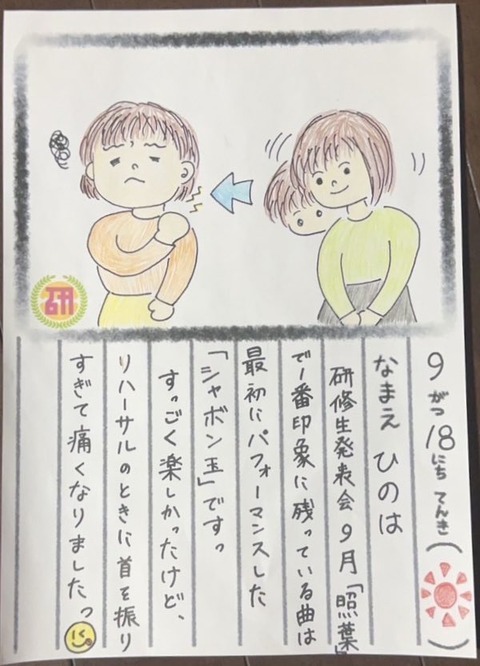 9がつ18にち てんき( )
なまえ ひのは
研修生発表会9月「照葉」
で1番印象に残っている曲は
最初にパフォーマンスした
「シャボン玉」ですっ
すっごく楽しかったけど、
リハーサルのときに首を振り
すぎて痛くなりましたっ
研